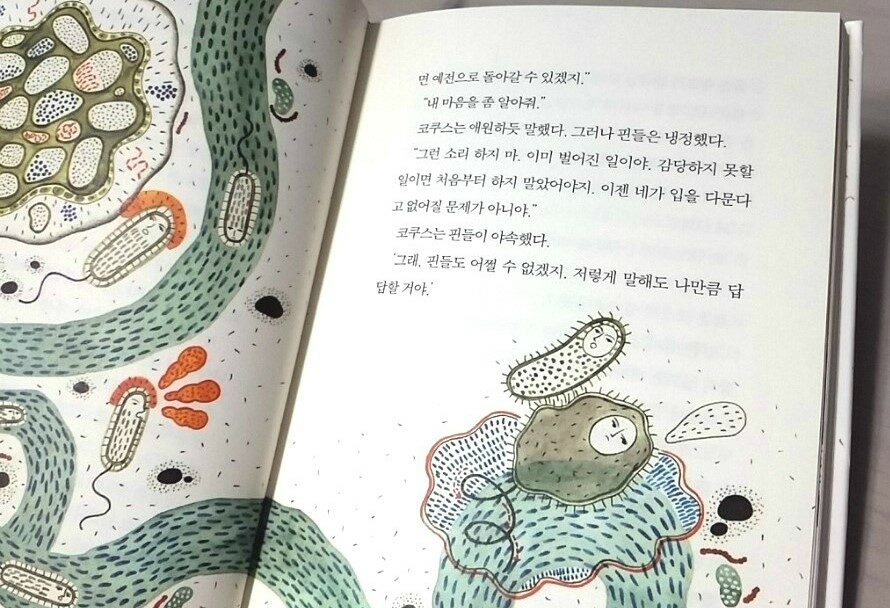 면 예전으로 돌아갈 수 있겠지.”
“내 마음을 좀 알아줘.”
코쿠스는 애원하듯 말했다. 그러나 핀들은 냉정했다.
“그런 소리 하지 마. 이미 벌어진 일이야. 감당하지 못할
일이면 처음부터 하지 말았어야지. 이젠 네가 입을 다문다
고 없어질 문제가 아니야.”
코쿠스는 핀들이 야속했다.
‘그래. 핀들도 어쩔 수 없겠지. 저렇게 말해도 나만큼 답
답할 거야.’